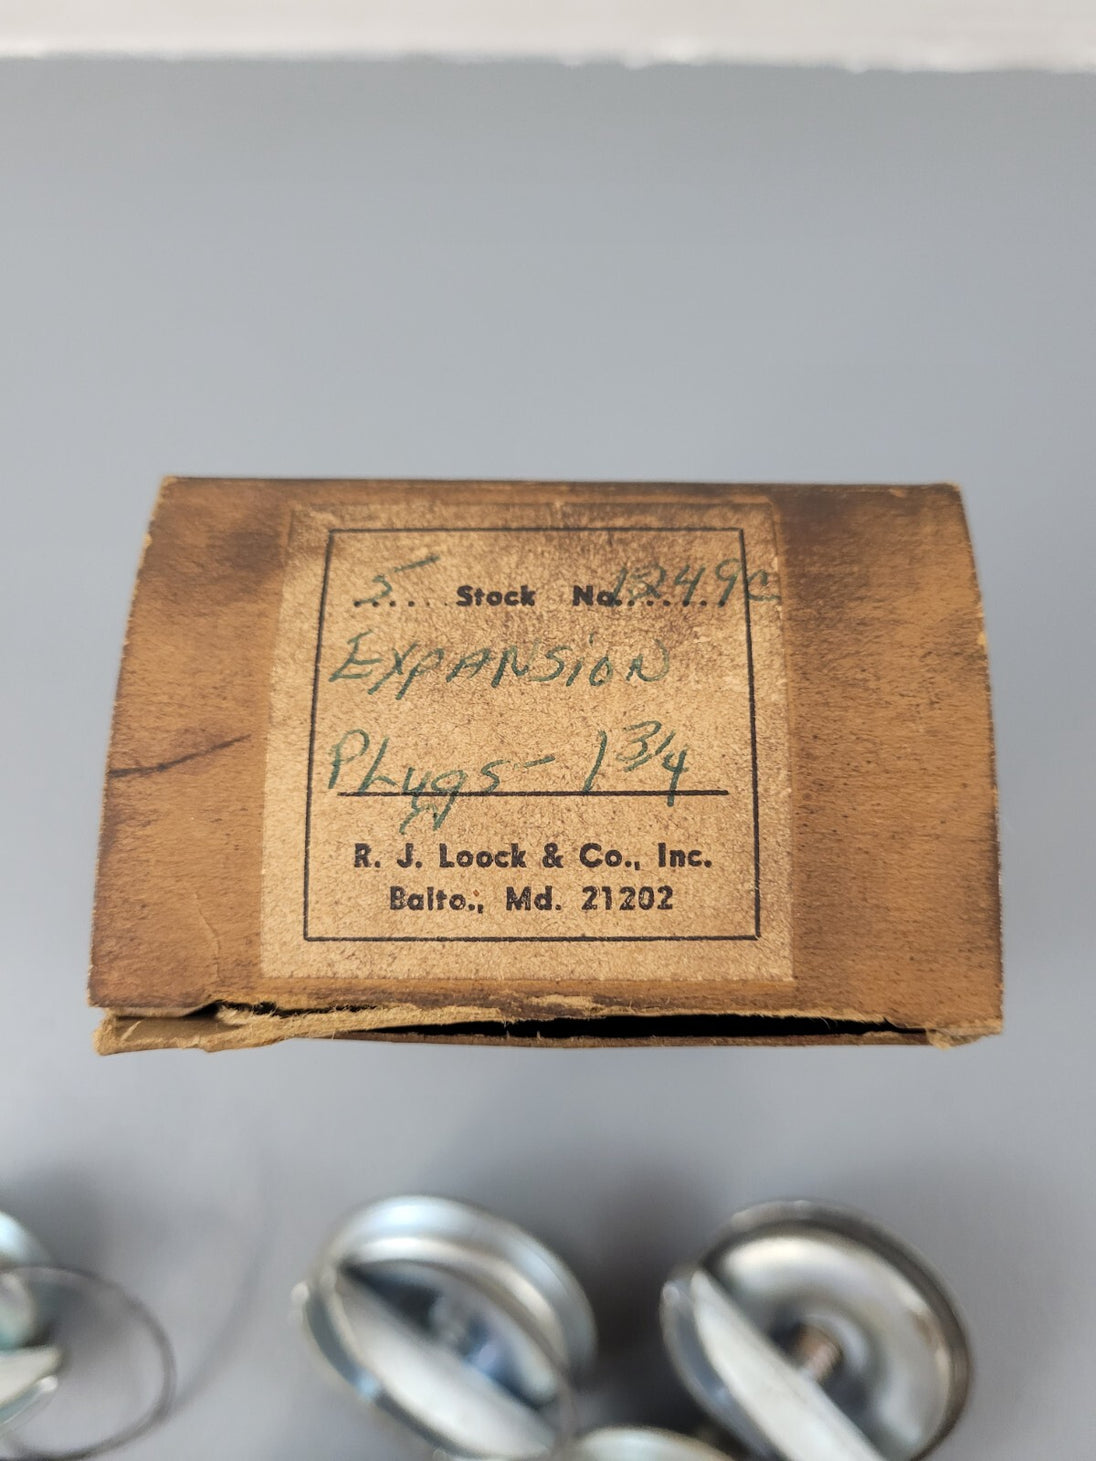 5 Stock No. 1249C
EXPANSION
PLugs - 1 3/4
R. J. Loock & Co., Inc.
Balto., Md. 21202